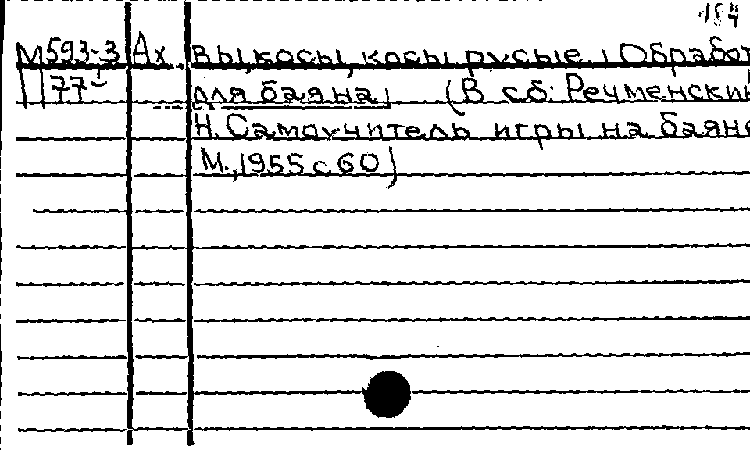 М593-3 Ах. Вы, косы, косы русые. (Обработ
77 для баяна) (В сб: Речменский
Н. Самоучитель игры на баяне
М., 1955 с 60)